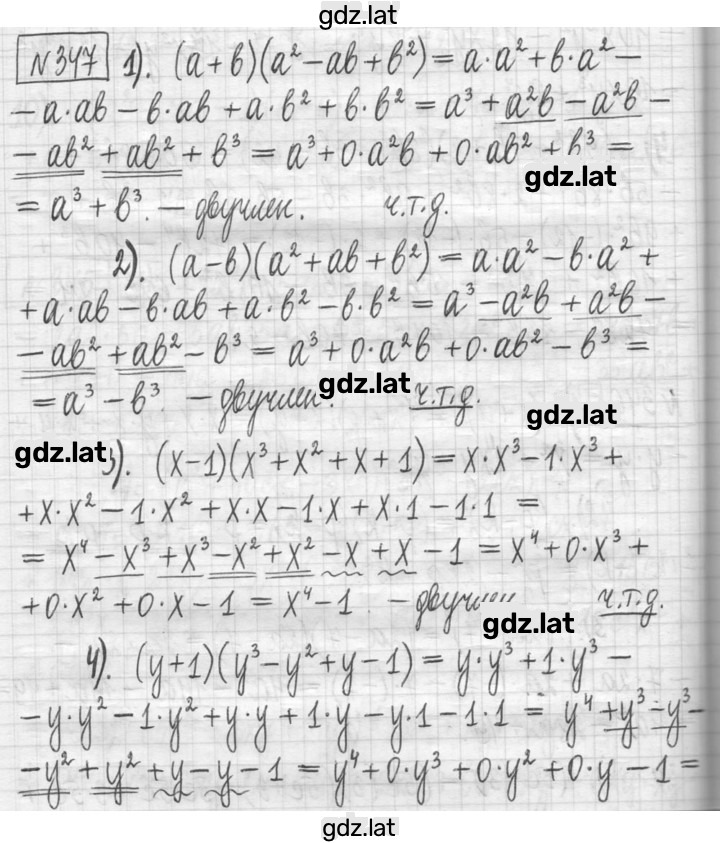 gdz.lat
№347 1). (a+b)(a²-ab+b²)=a·a²+b·a²-
-a·ab-b·ab+a·b²+b·b²=a³+a²b-a²b-
-ab²+ab²+b³=a³+0·a²b+0·ab²+b³=
gdz.lat
=a³+b³. - двучлен. ч.т.д.
2). (a-b)(a²+ab+b²)=a·a²-b·a²+
+a·ab-b·ab+a·b²-b·b²=a³-a²b+a²b-
-ab²+ab²-b³=a³+0·a²b+0·ab²-b³=
gdz.lat
=a³-b³. - двучлен. ч.т.д.
gdz.lat
gdz.lat 3). (x-1)(x³+x²+x+1)=x·x³-1·x³+
+x·x²-1·x²+x·x-1·x+x·1-1·1=
=x⁴-x³+x³-x²+x²-x+x-1=x⁴+0·x³+
+0·x²+0·x-1=x⁴-1. - двучлен ч.т.д.
gdz.lat
4). (y+1)(y³-y²+y-1)=y·y³+1·y³-
-y·y²-1·y²+y·y+1·y-y·1-1·1=y⁴+y³-y³-
-y²+y²+y-y-1=y⁴+0·y³+0·y²+0·y-1=
gdz.lat